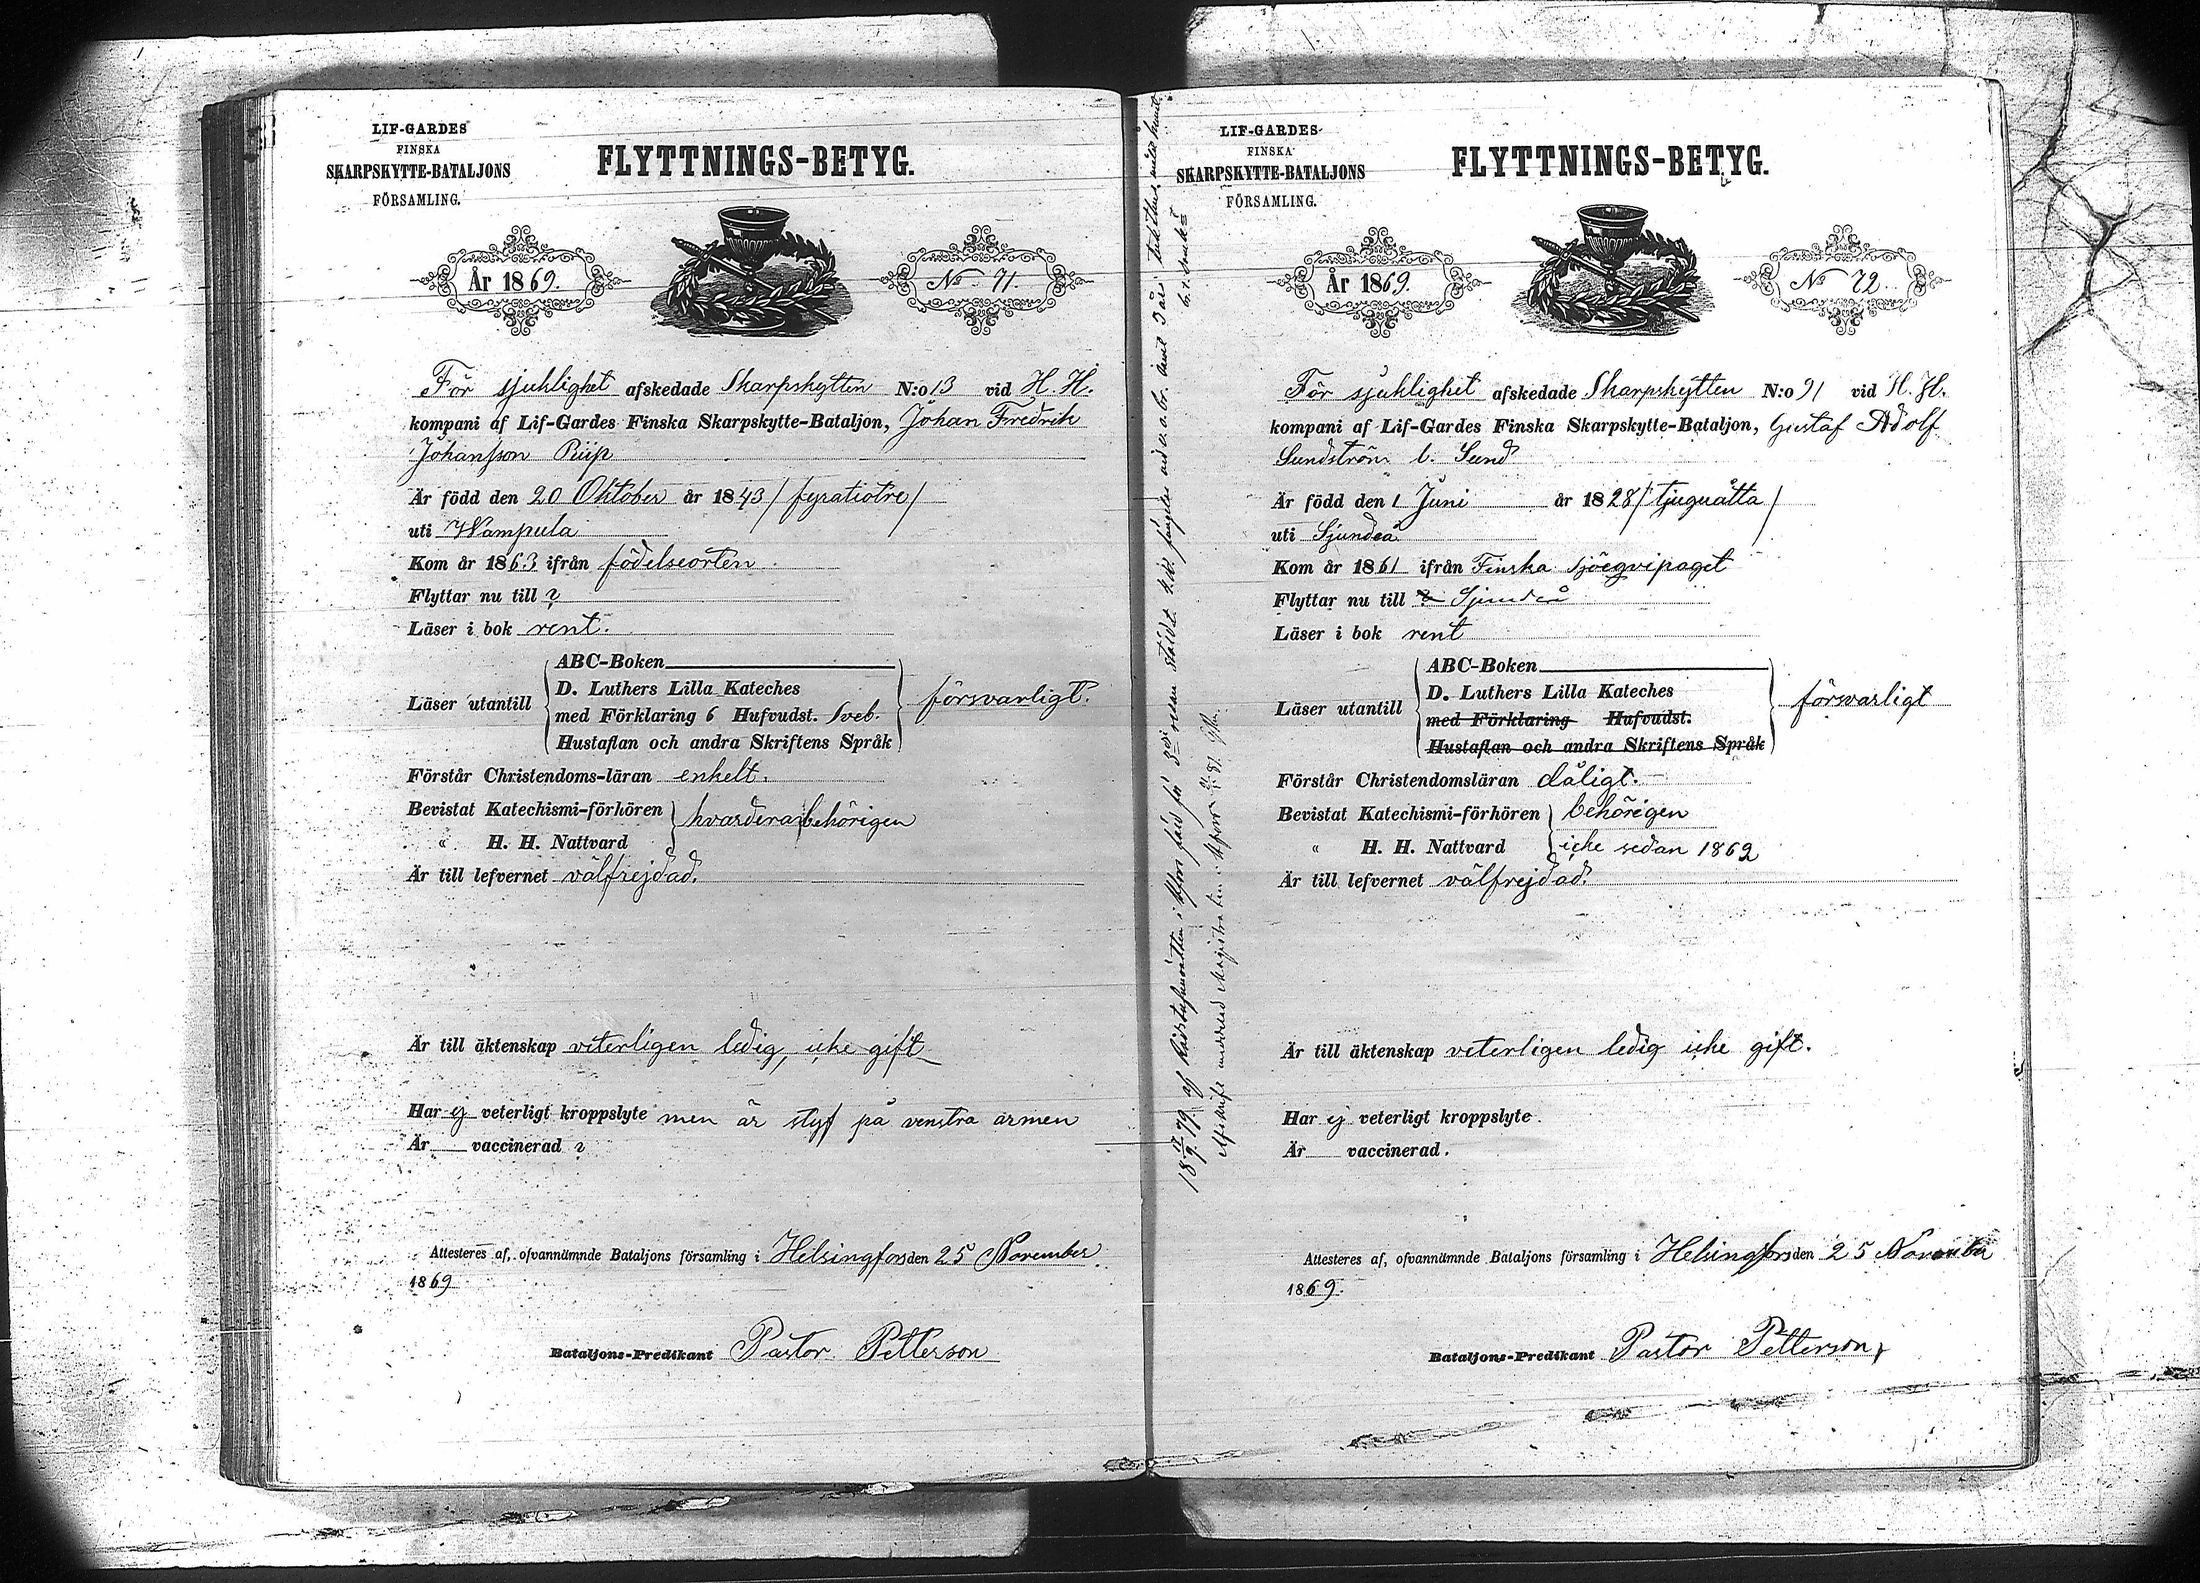 LIF-GARDES
FINSKA
SKARPSKYTTE-BATALJONS
FÖRSAMLING.
FLYTTNINGS-BETYG.
År 1869.
No 71.
För sjuklighet afskedade Skarpskytten N:o 13 vid H. H.
kompani af Lif-Gardes Finska Skarpskytte-Bataljon, Johan Fredrik
Johansson Piip
Är född den 20 Oktober år 1843 / fyratiotre /
uti Wampula
Kom år 1863 ifrån födelseorten
Flyttar nu till ?
Läser i bok rent.
Läser utantill
ABC-Boken
D. Luthers Lilla Kateches
med Förklaring 6 Hufvudst. Sveb.
Hustaflan och andra Skriftens Språk
försvarligt.
Förstår Christendoms-läran enkelt.
Bevistat Katechismi-förhören
" H. H. Nattvard
hvardera behörigen
Är till lefvernet välfrejdad.
Är till äktenskap veterligen ledig, icke gift
Har ej veterligt kroppslyte men är styf på venstra armen
Är vaccinerad ?
Attesteres af, ofvannämnde Bataljons församling i Helsingfors den 25 November
1869
Bataljons-Predikant Pastor Petterson
LIF-GARDES
FINSKA
SKARPSKYTTE-BATALJONS
FÖRSAMLING.
FLYTTNINGS-BETYG.
År 1869.
No 72.
För sjuklighet afskedade Skarpskytten N:o 91 vid H. H.
kompani af Lif-Gardes Finska Skarpskytte-Bataljon, Gustaf Adolf
Sundström l. Sund
Är född den 1 Juni år 1828 / tjuguåtta /
uti Sjundeå
Kom år 1861 ifrån Finska sjöeqvipaget
Flyttar nu till ? Sjundeå
Läser i bok rent
Läser utantill
ABC-Boken
D. Luthers Lilla Kateches
med Förklaring Hufvudst.
Hustaflan och andra Skriftens Språk
försvarligt
Förstår Christendomsläran dåligt.
Bevistat Katechismi-förhören behörigen
" H. H. Nattvard icke sedan 1862
Är till lefvernet välfrejdad.
Är till äktenskap veterligen ledig icke gift.
Har ej veterligt kroppslyte.
Är vaccinerad.
Attesteres af, ofvannämnde Bataljons församling i Helsingfors den 25 November
1869.
Bataljons-Predikant Pastor Petterson